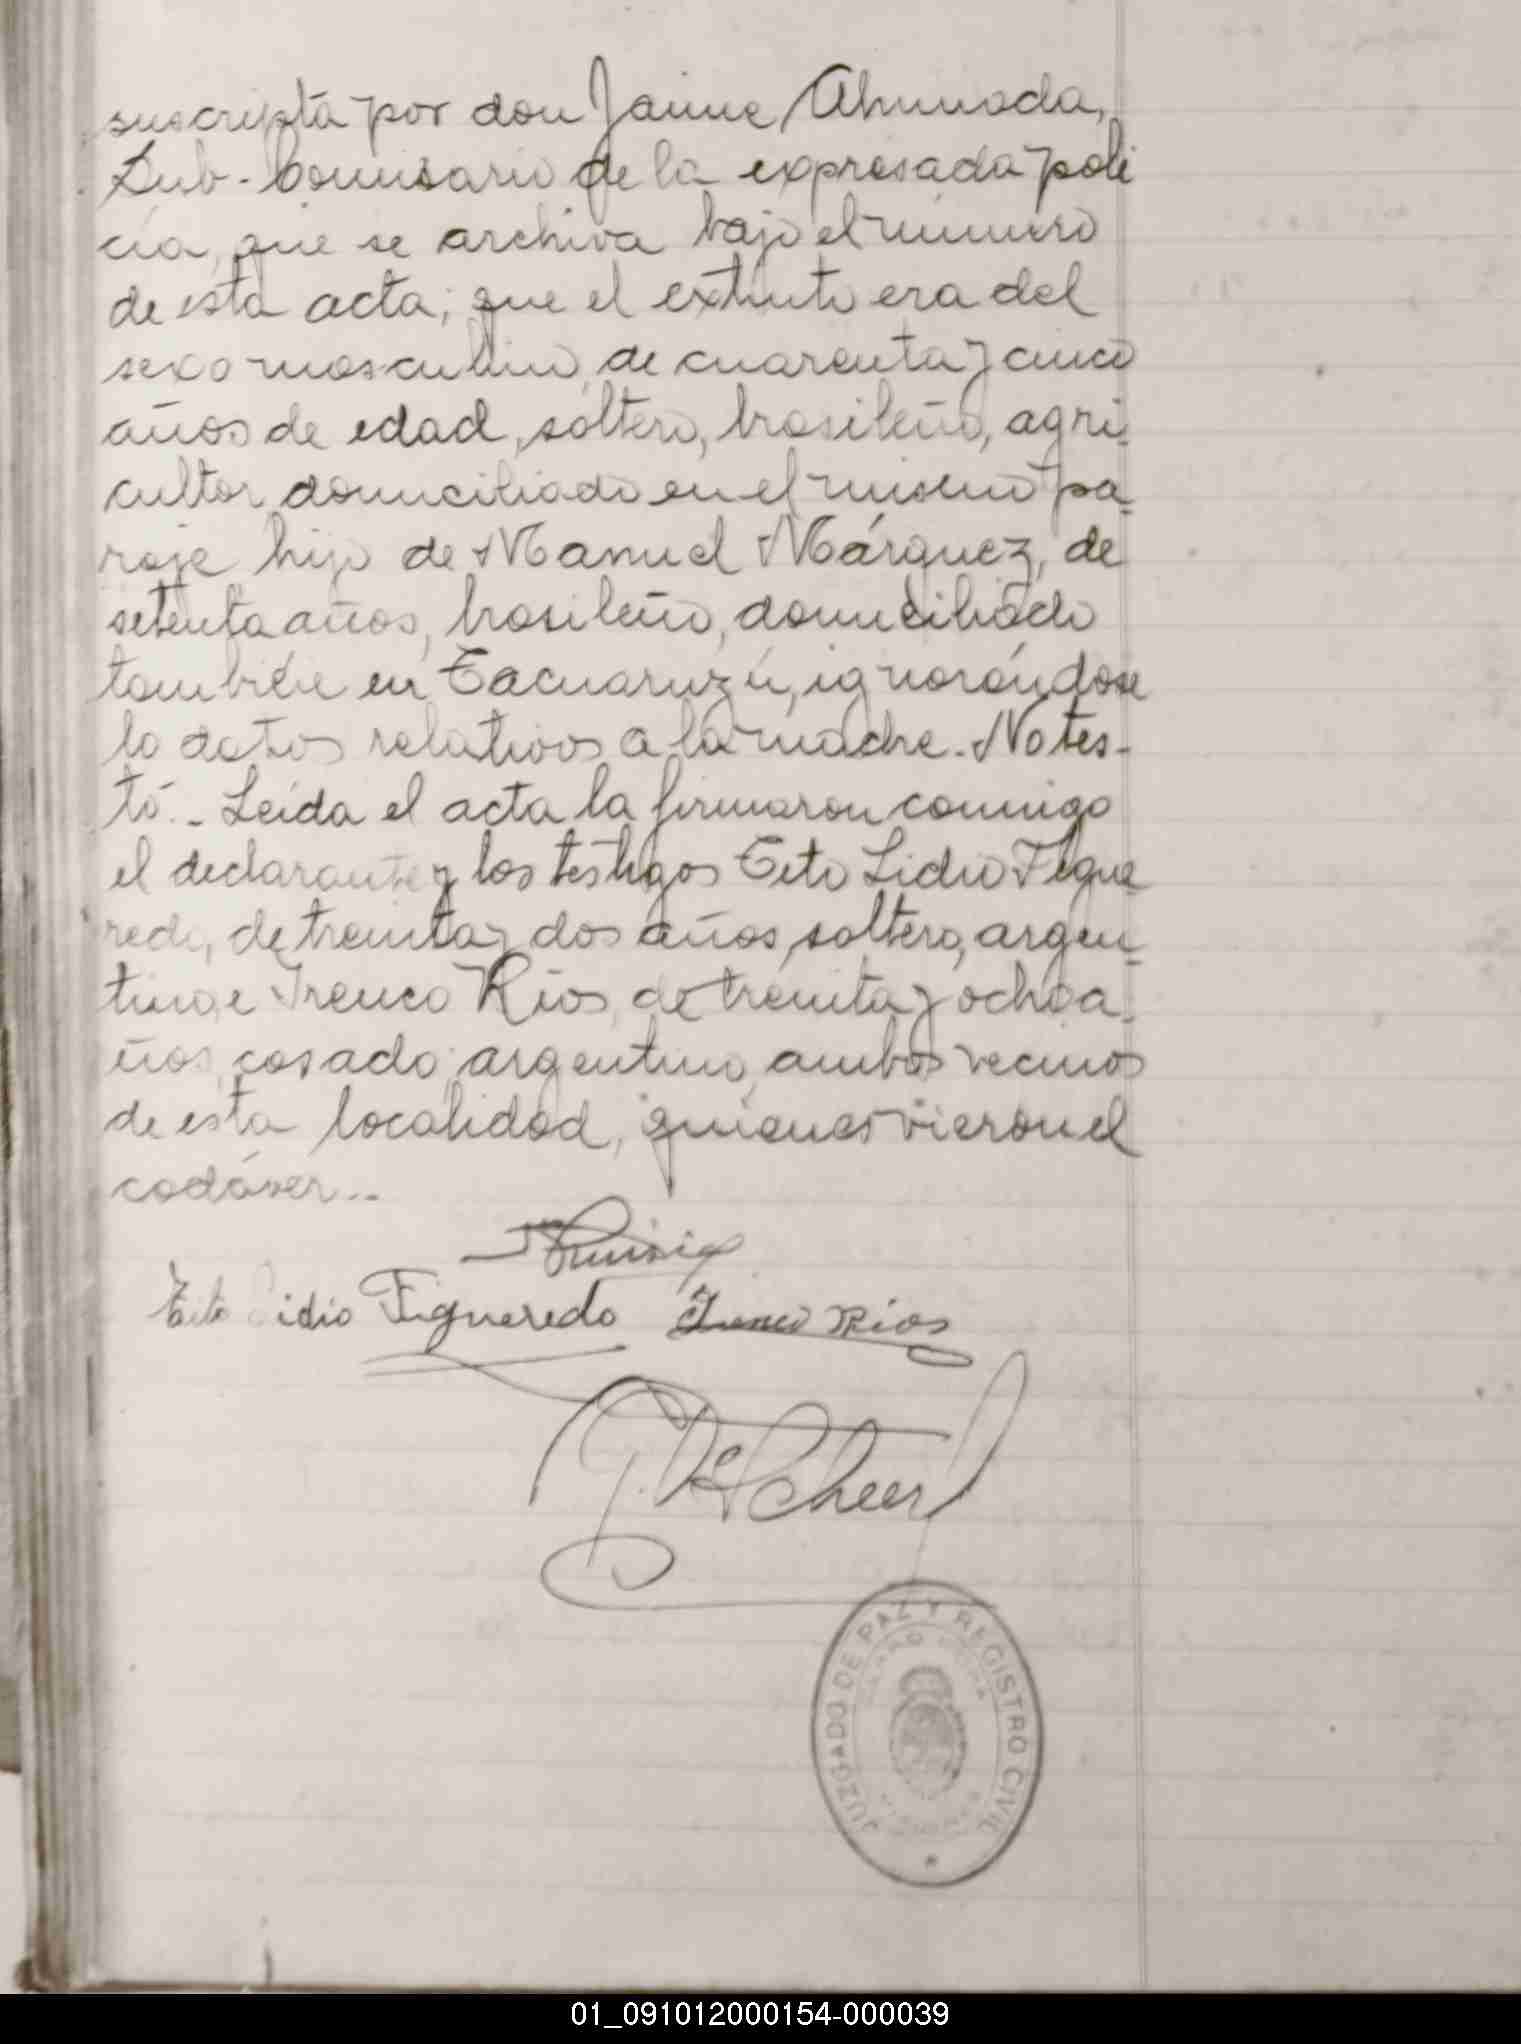 suscripta por don Jaime Ahumada,
Sub-Comisario de la expresada poli
cia, que se archiva bajo el número
de esta acta; que el extinto era del
sexo masculino, de cuarenta y cinco
años de edad, soltero, brasileño, agri-
cultor domiciliado en el mismo pa-
raje hijo de Manuel Márquez, de
setenta años, brasileño, domiciliado
también en Tacuaruzú, ignorándose
lo datos relativos a la madre. No tes-
tó.- Leída el acta la firmaron conmigo
el declarante y los testigos Tito Lidio Figue
redo, de treinta y dos años, soltero, argen-
tino, e Ireneo Ríos, de treinta y ocho a-
ños, casado, argentino, ambos vecinos
de esta localidad, quienes vieron el
cadáver.-
Tito Lidio Figueredo Ireneo Rios
Scheer
JUZGADO DE PAZ Y REGISTRO CIVIL
MISIONES
01_091012000154-000039